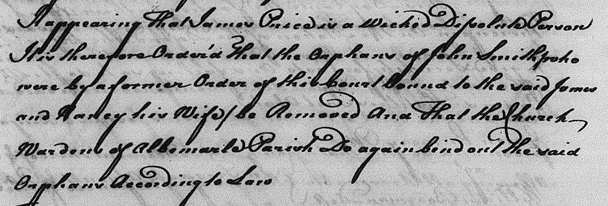 It appearing That James Price is a Wicked Dissolute Person
It is therefore Order'd That the Orphans of John Smith (who
were by a former Order of this Court bound to the said James
and Nancy his Wife) be Removed And That the Church
Wardens of Albemarle Parish Do again bind out the said
Orphans According to Law